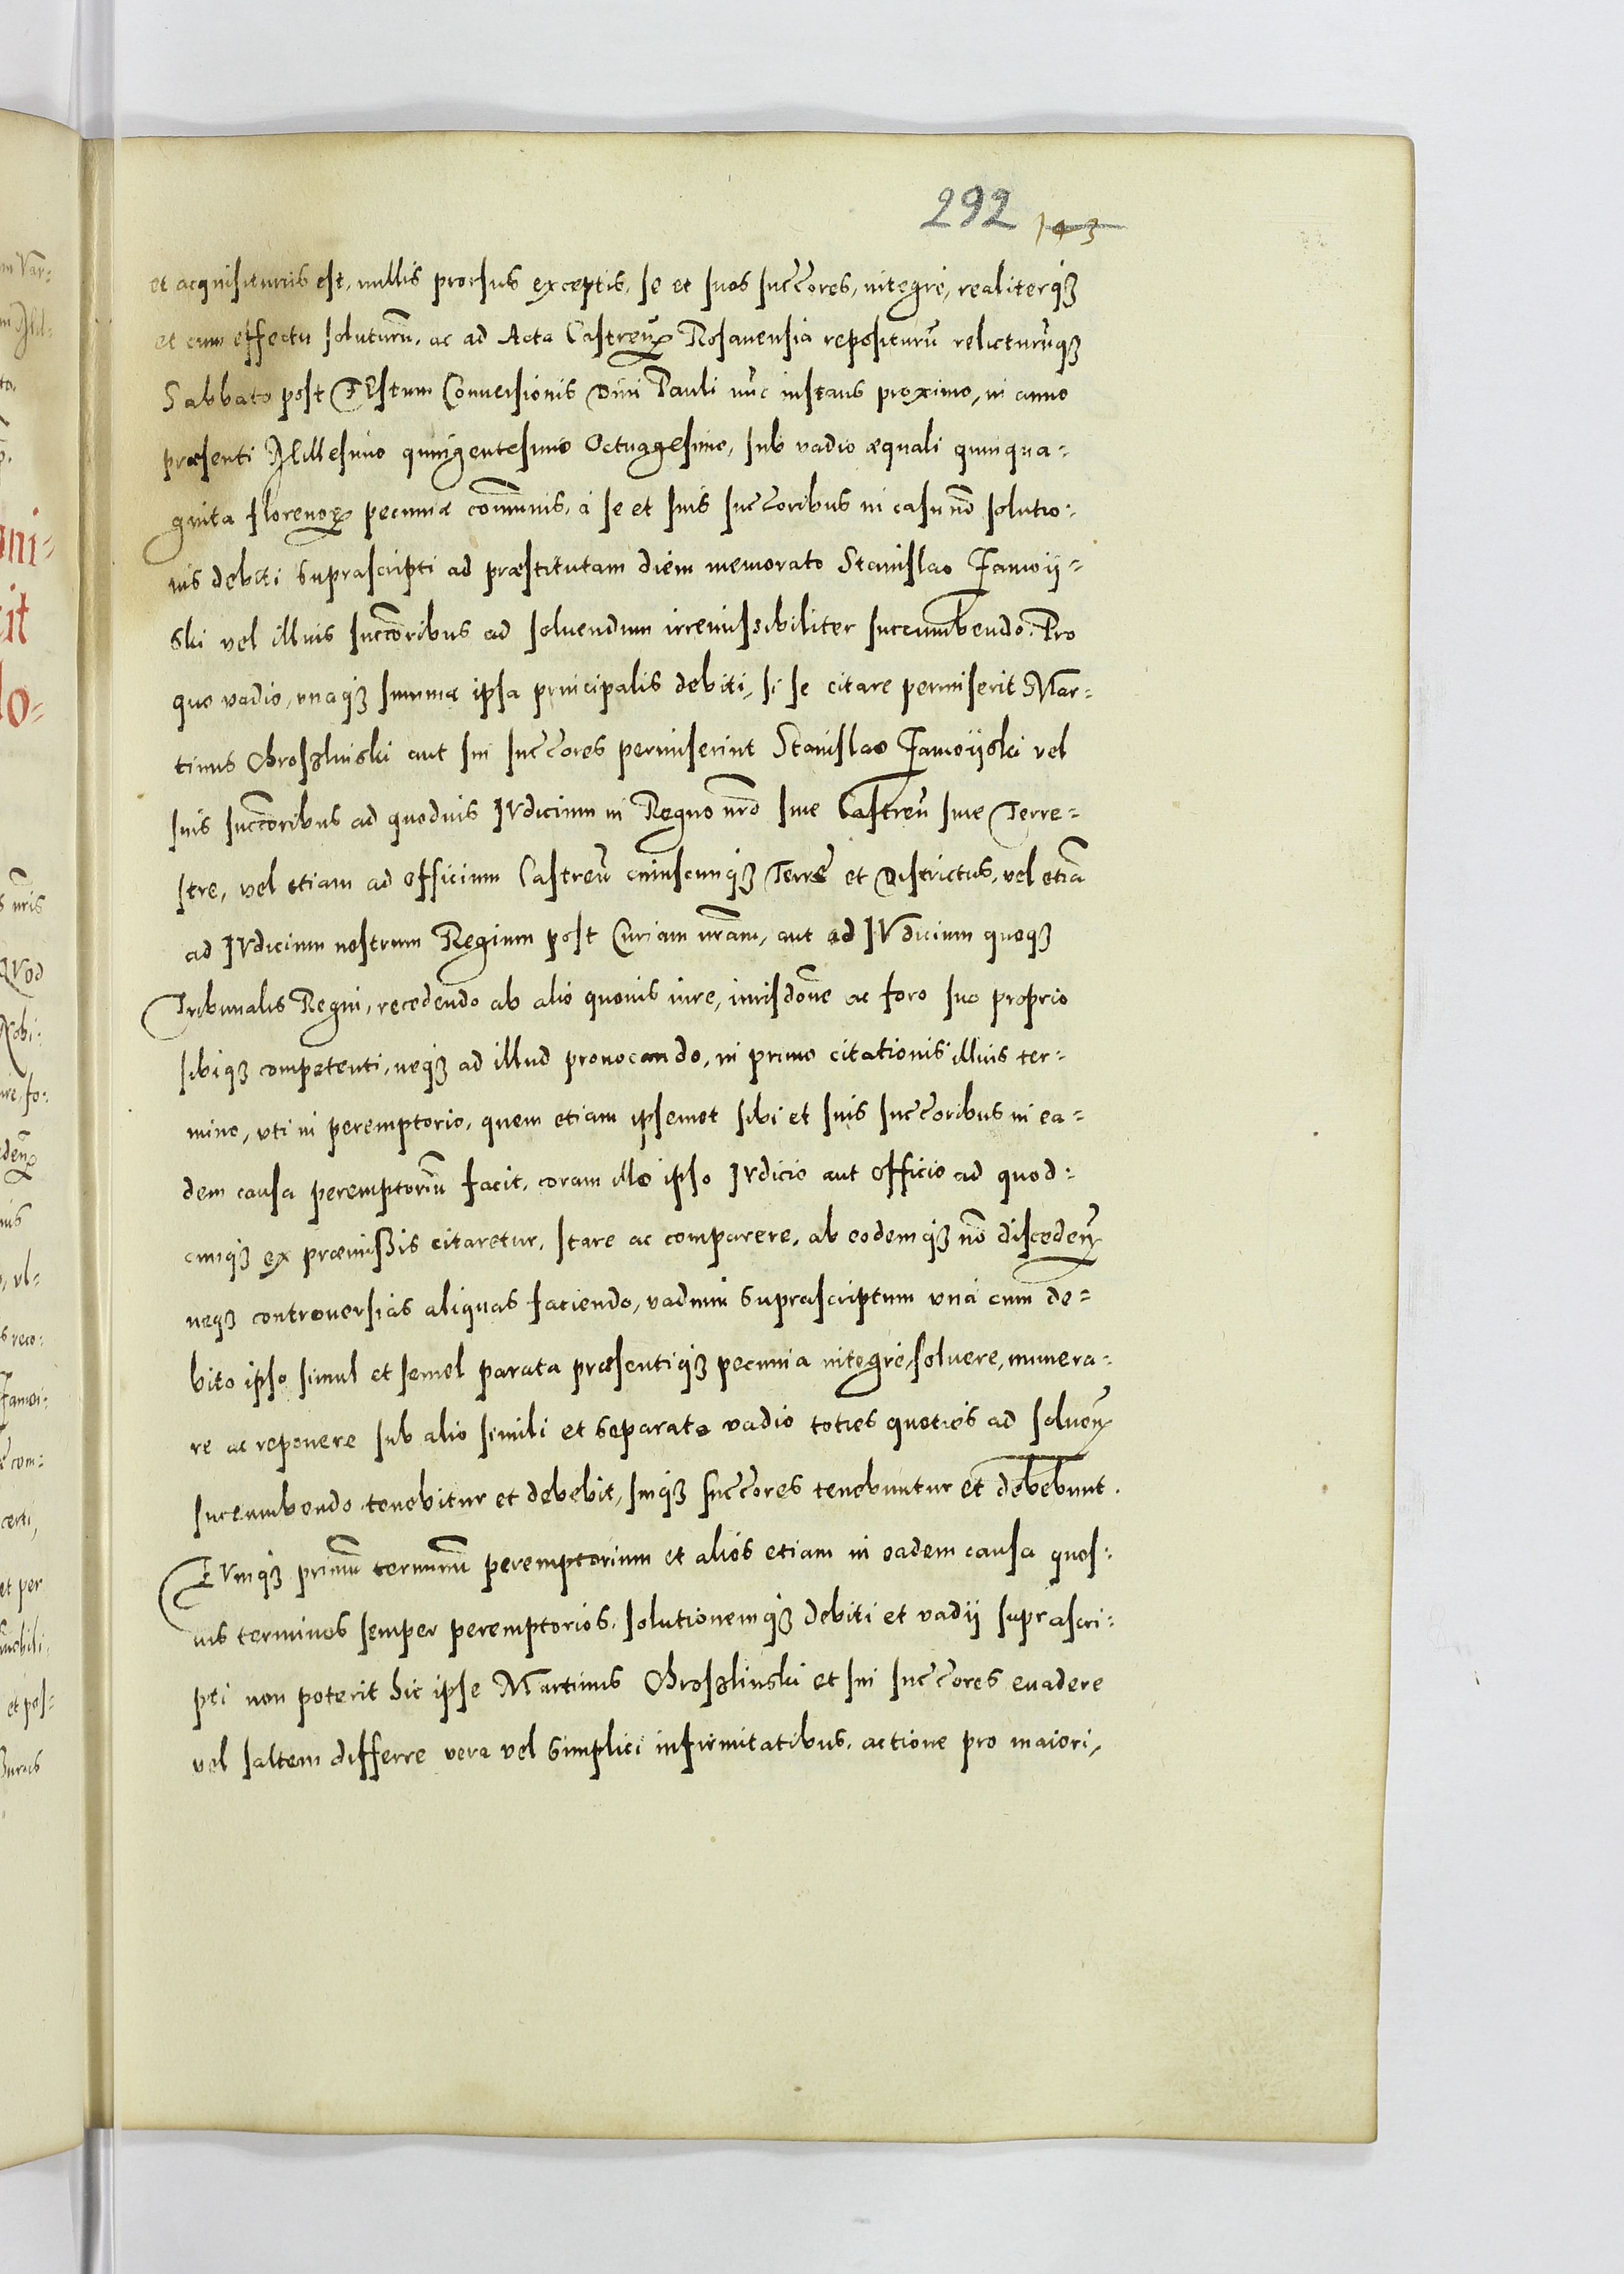 292 143
et acquisiturus est, nullis prorsus exceptis, se et suos succ̃ores, integrè, realiterq́3
et cum effectu soluturũ, ac ad Acta Castreñ Rosanensia repositurũ relicturũq3
Sabbato post FEstum Conuersionis Diui Pauli nũc instans proximo, in anno
præsenti Millesimo quingentesimo Octuagesimo, sub vadio æquali quinqua⸗
ginta florenoꝝ pecuniæ com̃unis, à se et suis succ̃oribus in casu nõ solutio:
nis debiti suprascripti ad præstitutam diem memorato Stanislao Jamoij⸗
ski vel illius succ̃oribus ad soluendum irremissibiliter succumbendo. Pro
quo vadio, vnaq́3 summa ipsa principalis debiti, si se citare permiserit Mar⸗
tinus Groszlinski aut sui succ̃ores permiserint Stanislao Jamoijski vel
suis succ̃oribus ad quoduis IVdicium in Regno nr̃o siue Castreñ siue Terre⸗
stre, vel etiam ad officium Castreñ cuiuscunq́3 Terræ et Districtus, vel etiã
ad IVdicium nostrum Regium post Curiam nr̃am, aut ad IVdicium quoq3
Tribunalis Regni, recedendo ab alio quouis iure, iurisdõne ac foro suo proprio
sibiq3 competenti, neq3 ad illud prouocando, in primo citationis illius ter⸗
mino, vti in peremptorio, quem etiam ipsemet sibi et suis succ̃oribus in ea⸗
dem causa peremptoriũ facit, coram illo ipso IVdicio aut officio ad quod:
cunq3 ex præmissis citaretur, stare ac comparere, ab eodemq́3 nõ discedeñ
neq3 controuersias aliquas faciendo, vadium suprascriptum vnà cum de⸗
bito ipso simul et semel parata præsentiq́3 pecunia integrè, soluere, numera⸗
re ac reponere sub alio simili et separato vadio toties quoties ad solueñ
succumbendo tenebitur et debebit, suiq3 succ̃ores tenebuntur et debebunt.
EVmq3 primũ terminũ peremptorium et alios etiam in eadem causa quos:
uis terminos semper peremptorios, solutionemq́3 debiti et vadij suprascri:
pti non poterit hic ipse Martinus Groszlinski et sui succ̃ores euadere
vel saltem differre vera vel simplici infirmitatibus, actione pro maiori,